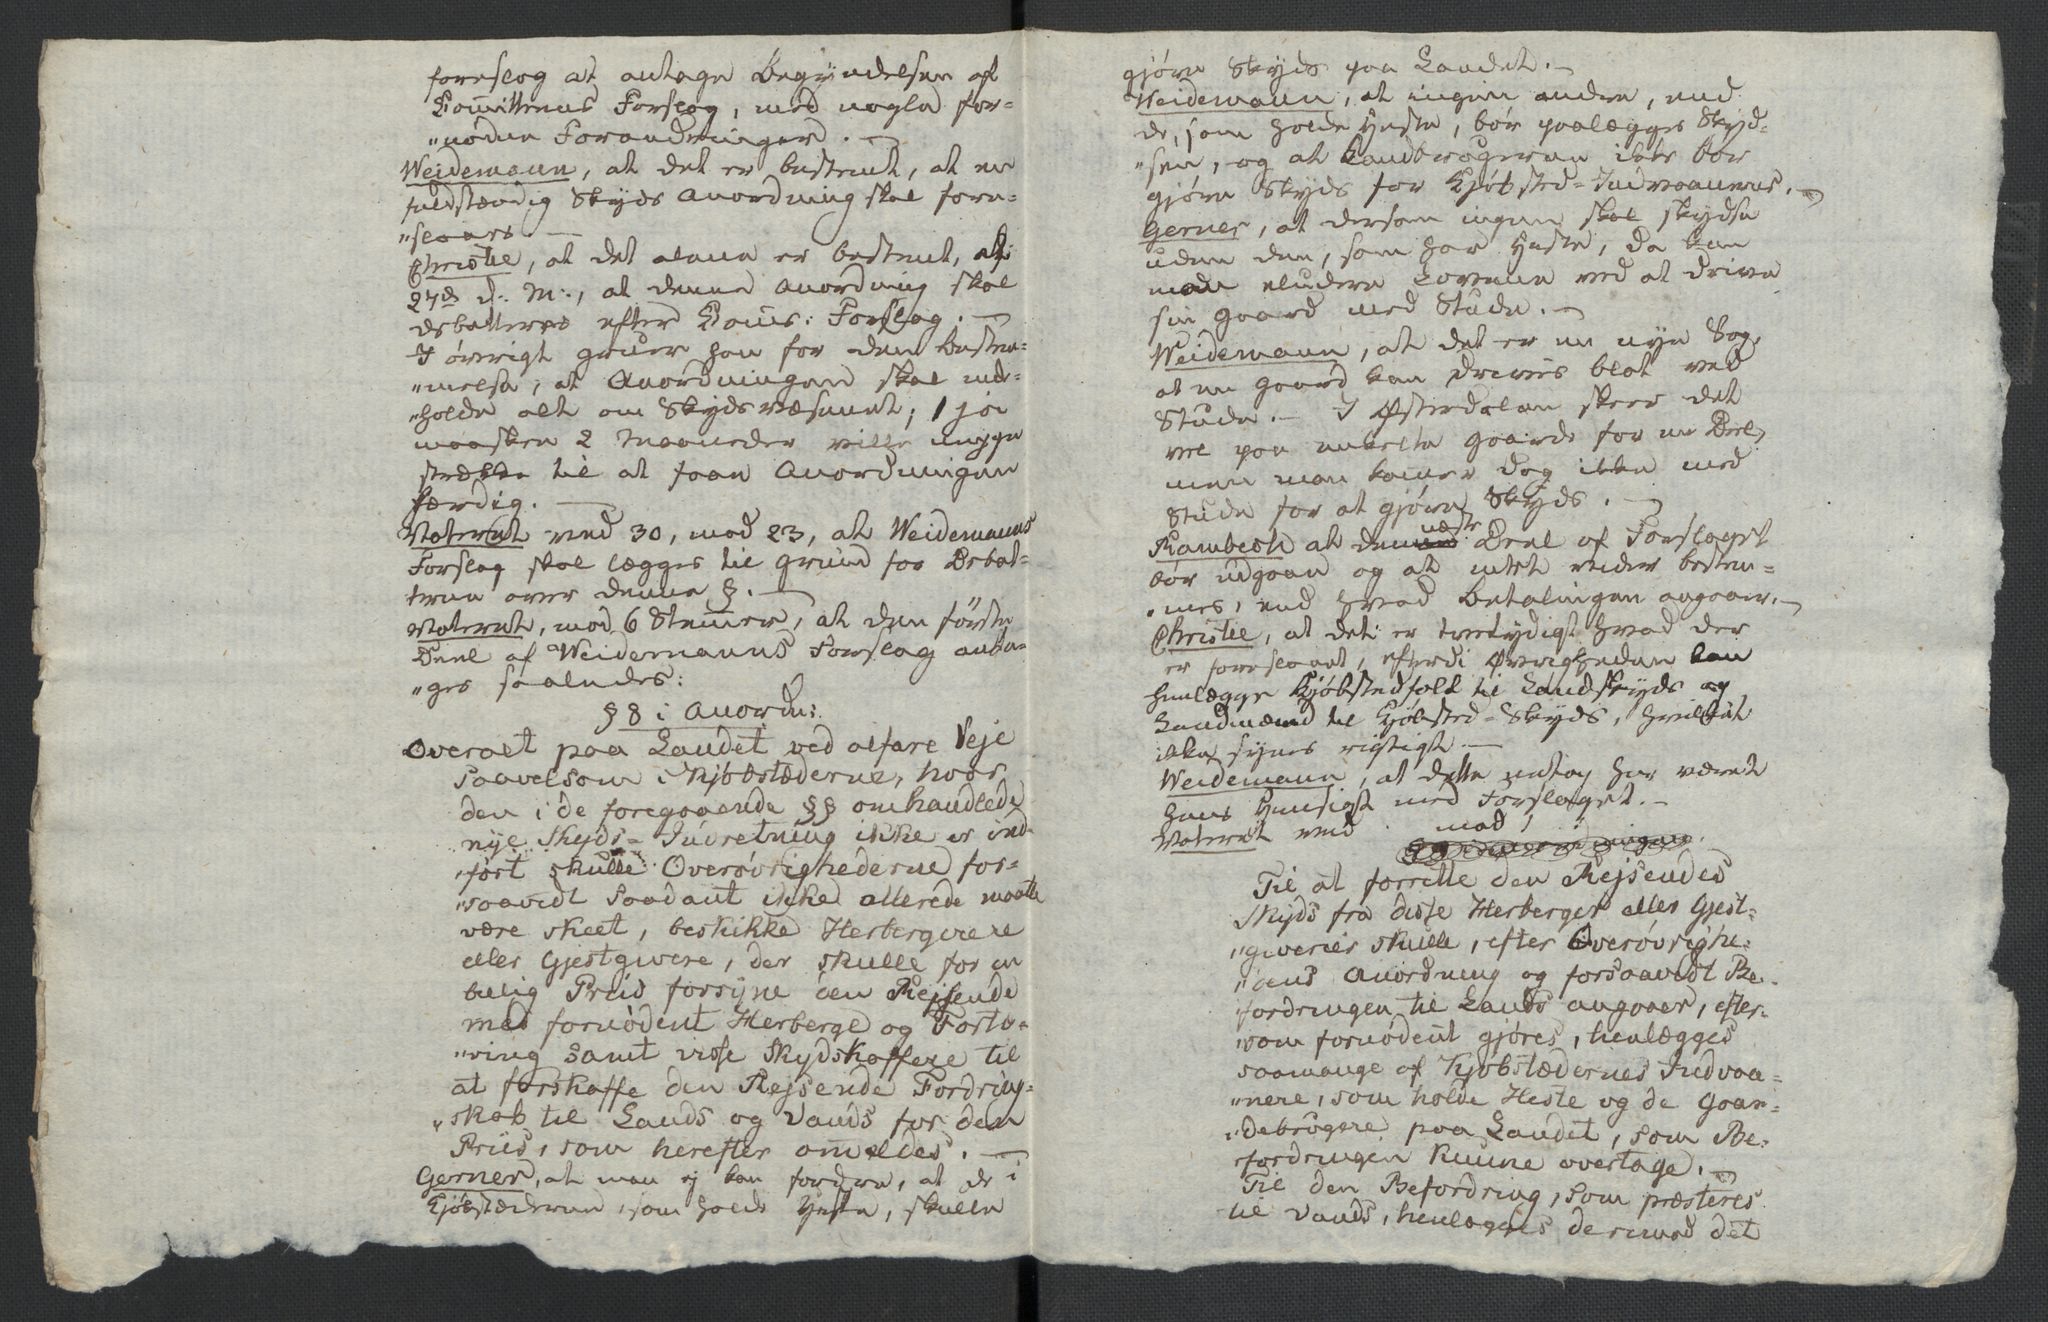 foreslog at antage Begyndelsen af
Comitteens Forslag, med nogle for-
"nødne Forandringer. —
Weidemann, at det er bestemt, at en
fuldstændig Skyds Anordning skal fore-
"slaaes. —
Christie, at det alene er bestemt, d:
27de d: M:, at denne Anordning skal
debatteres efter Comis: Forslag. —
I øvrigt gruer han for den bestem-
"melse, at Anordningen skal inde-
"holde alt om Skydsvæsenet; 1 ja
maaskee 2 Maaneder ville neppe
strække til at faae Anordningen
færdig. —
Voteret ved 30, mod 23, at Weidemanns
Forslag skal lægges til Grund for Debat-
terne over denne §. —
Voteret, mod 6 Stemmer, at den første
Deel af Weidemanns Forslag anta-
"ges saaledes:
§ 8 i Anordn:
Overalt paa Landet ved alfare Veje
saavelsom i Kjøbstæderne, hvor
den i de foregaaende §§ omhandlede
nye Skyds-Indretning ikke er ind-
"ført skulle Overøvrighederne for-
"saavidt saadant ikke allerede maatte
være skeet, beskikke Herbergerere
eller Gjestgivere, der skulle for en
billig Priis forsyne den Rejsende
med fornødent Herberge og Fortæ-
"ring samt visse Skydskaffere til
at forskaffe den Rejsende Fordring-
"skab til Lands og Vands for den
Priis, som herefter ommeldes. —
Gerner, at man ej kan fordre, at de i
Kjøbstæderne, som holde Heste, skulle
gjøre Skyds paa Landet. —
Weidemann, at ingen andre, end
de, som holde Heste, bør paalægges Skyd-
"sen, og at Landbrugerne ikke bør
gjøre Skyds for Kjøbsted-Indvaanerne. —
Gerner, at dersom ingen skal skydse
uden den, som har Heste, da kan
man eludere Lovene ved at drive
sin Gaard med Stude. —
Weidemann, at det er en nye Sag,
at en Gaard kan drives blot ved
Stude. — I Østerdalen skeer det
vel paa enkelte Gaarde for en Deel,
men man kommer dog ikke med
Stude for at gjøre Skyds. —
Rambech at den næste Deel af Forslaget
bør udgaae og at intet videre bestem-
"mes, end hvad Betalingen angaaer. —
Christie, at det er tvetydigt hvad der
er foreslaaet, efterdi Øvrigheden kan
henlægge Kjøbstedfolk til Landskyds og
Landmænd til Kjøbsted-Skyds, hvilket
ikke synes rigtigt. —
Weidemann, at dette netop har været
hans Hensigt med Forslaget. —
Voteret ved mod,
Til at forrette den Rejsendes
Skyds fra disse Herberger eller Gjest-
"giverier skulle, efter Overøvrighe-
"dens Anordning og forsaavidt Be-
fordringen til Lands angaaer, efter-
"som fornødent gjøres, henlægges
saamange af Kjøbstædernes Indvaa-
"nere, som holde Heste og de Gaar-
"debrugere paa Landet, som Be-
fordringen kunne overtage. —
Til den Befordring, som præsteres
til Vands, henlægges derimod det